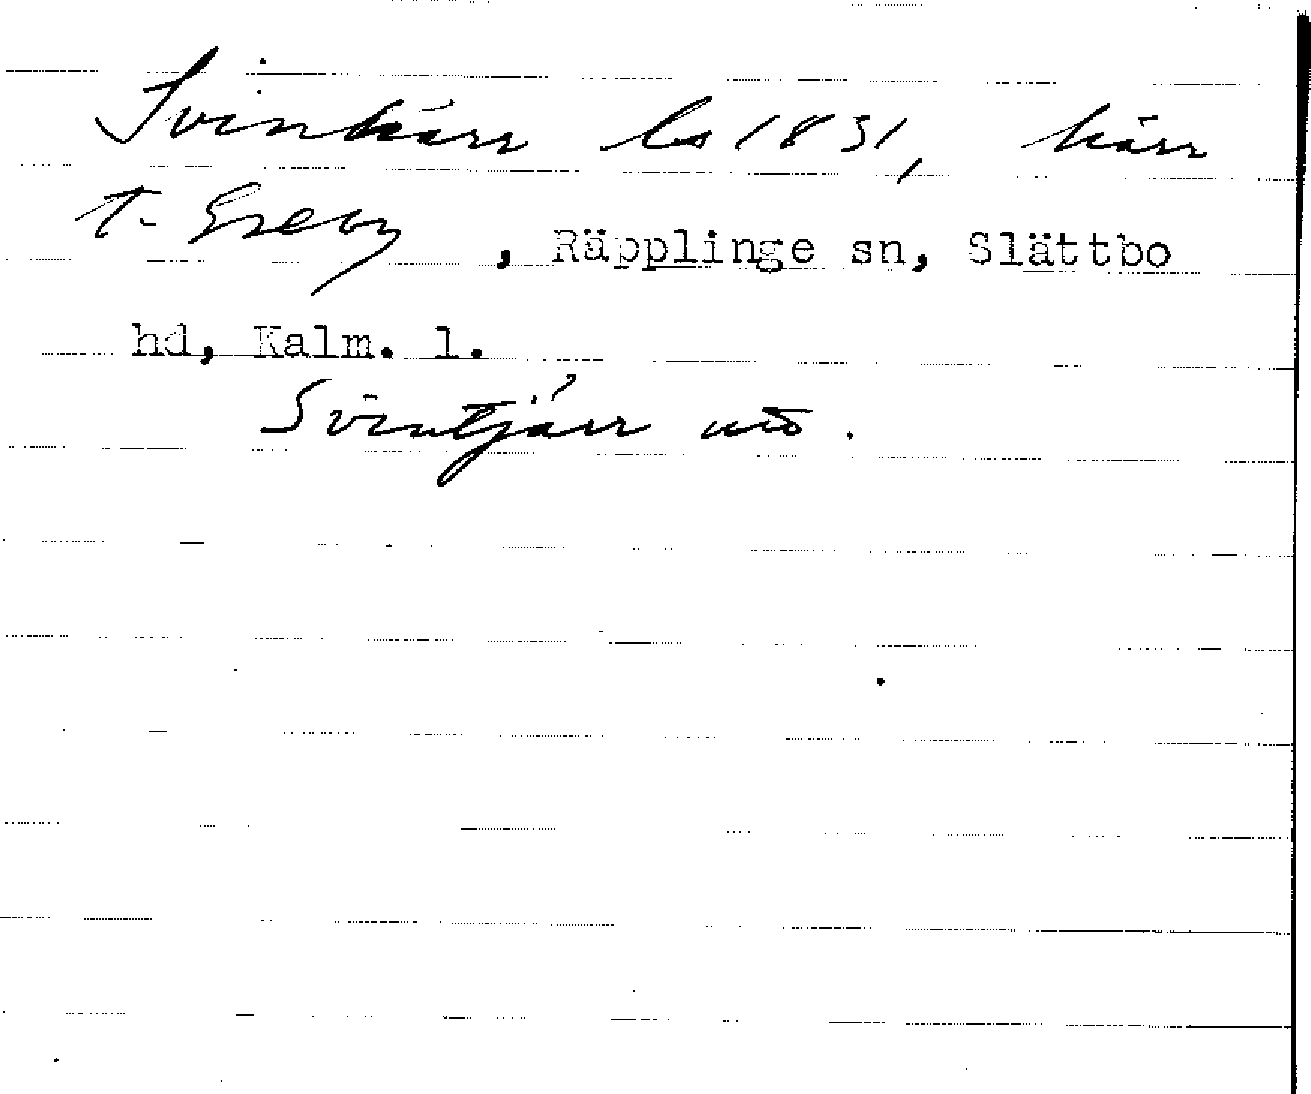 Svinkärr ls 1831, kärr
t. Greby, Räpplinge sn, Slättbo
hd, Kalm. l.
Svintjärr